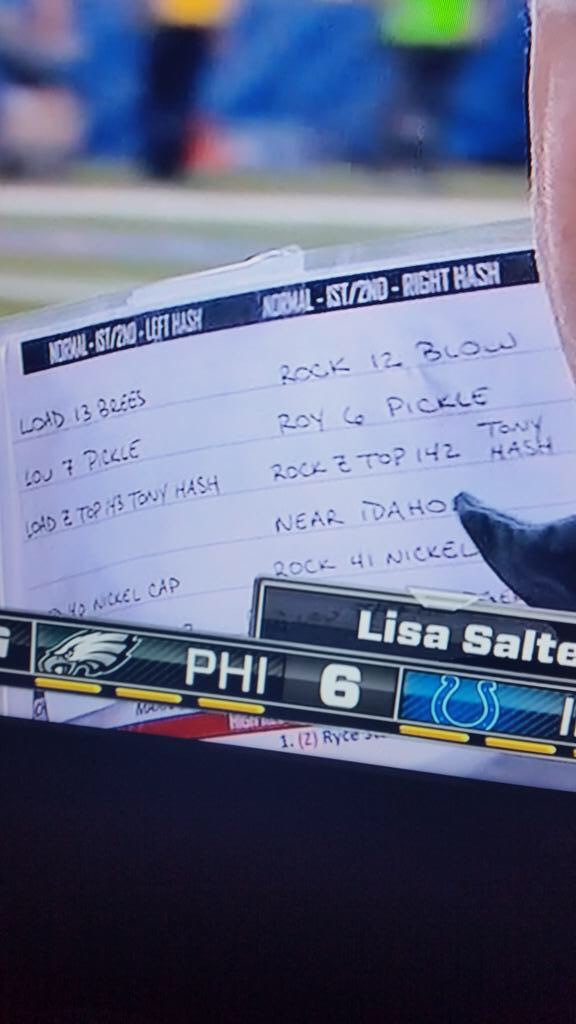 NORMAL - 1ST/2ND - LEFT HASH
LOAD 13 BREES
LOU 7 PICKLE
LOAD Z TOP 143 TONY HASH
40 NICKEL CAP
NORMAL - 1ST/2ND - RIGHT HASH
ROCK 12 BLOW
ROY 6 PICKLE
ROCK Z TOP 142 TONY HASH
NEAR IDAHO
ROCK 41 NICKEL
Lisa Salte
G PHI 6
1. (2) Ryce